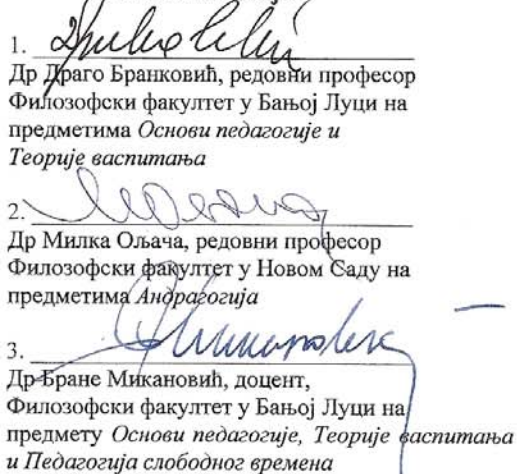 1.
Др Драго Бранковић, редовни професор
Филозофски факултет у Бањој Луци на
предметима Основи педагогије и
Теорије васпитања
2.
Др Милка Ољача, редовни професор
Филозофски факултет у Новом Саду на
предметима Андрагогија
3.
Др Бране Микановић, доцент,
Филозофски факултет у Бањој Луци на
предмету Основи педагогије, Теорије васпитања
и Педагогија слободног времена